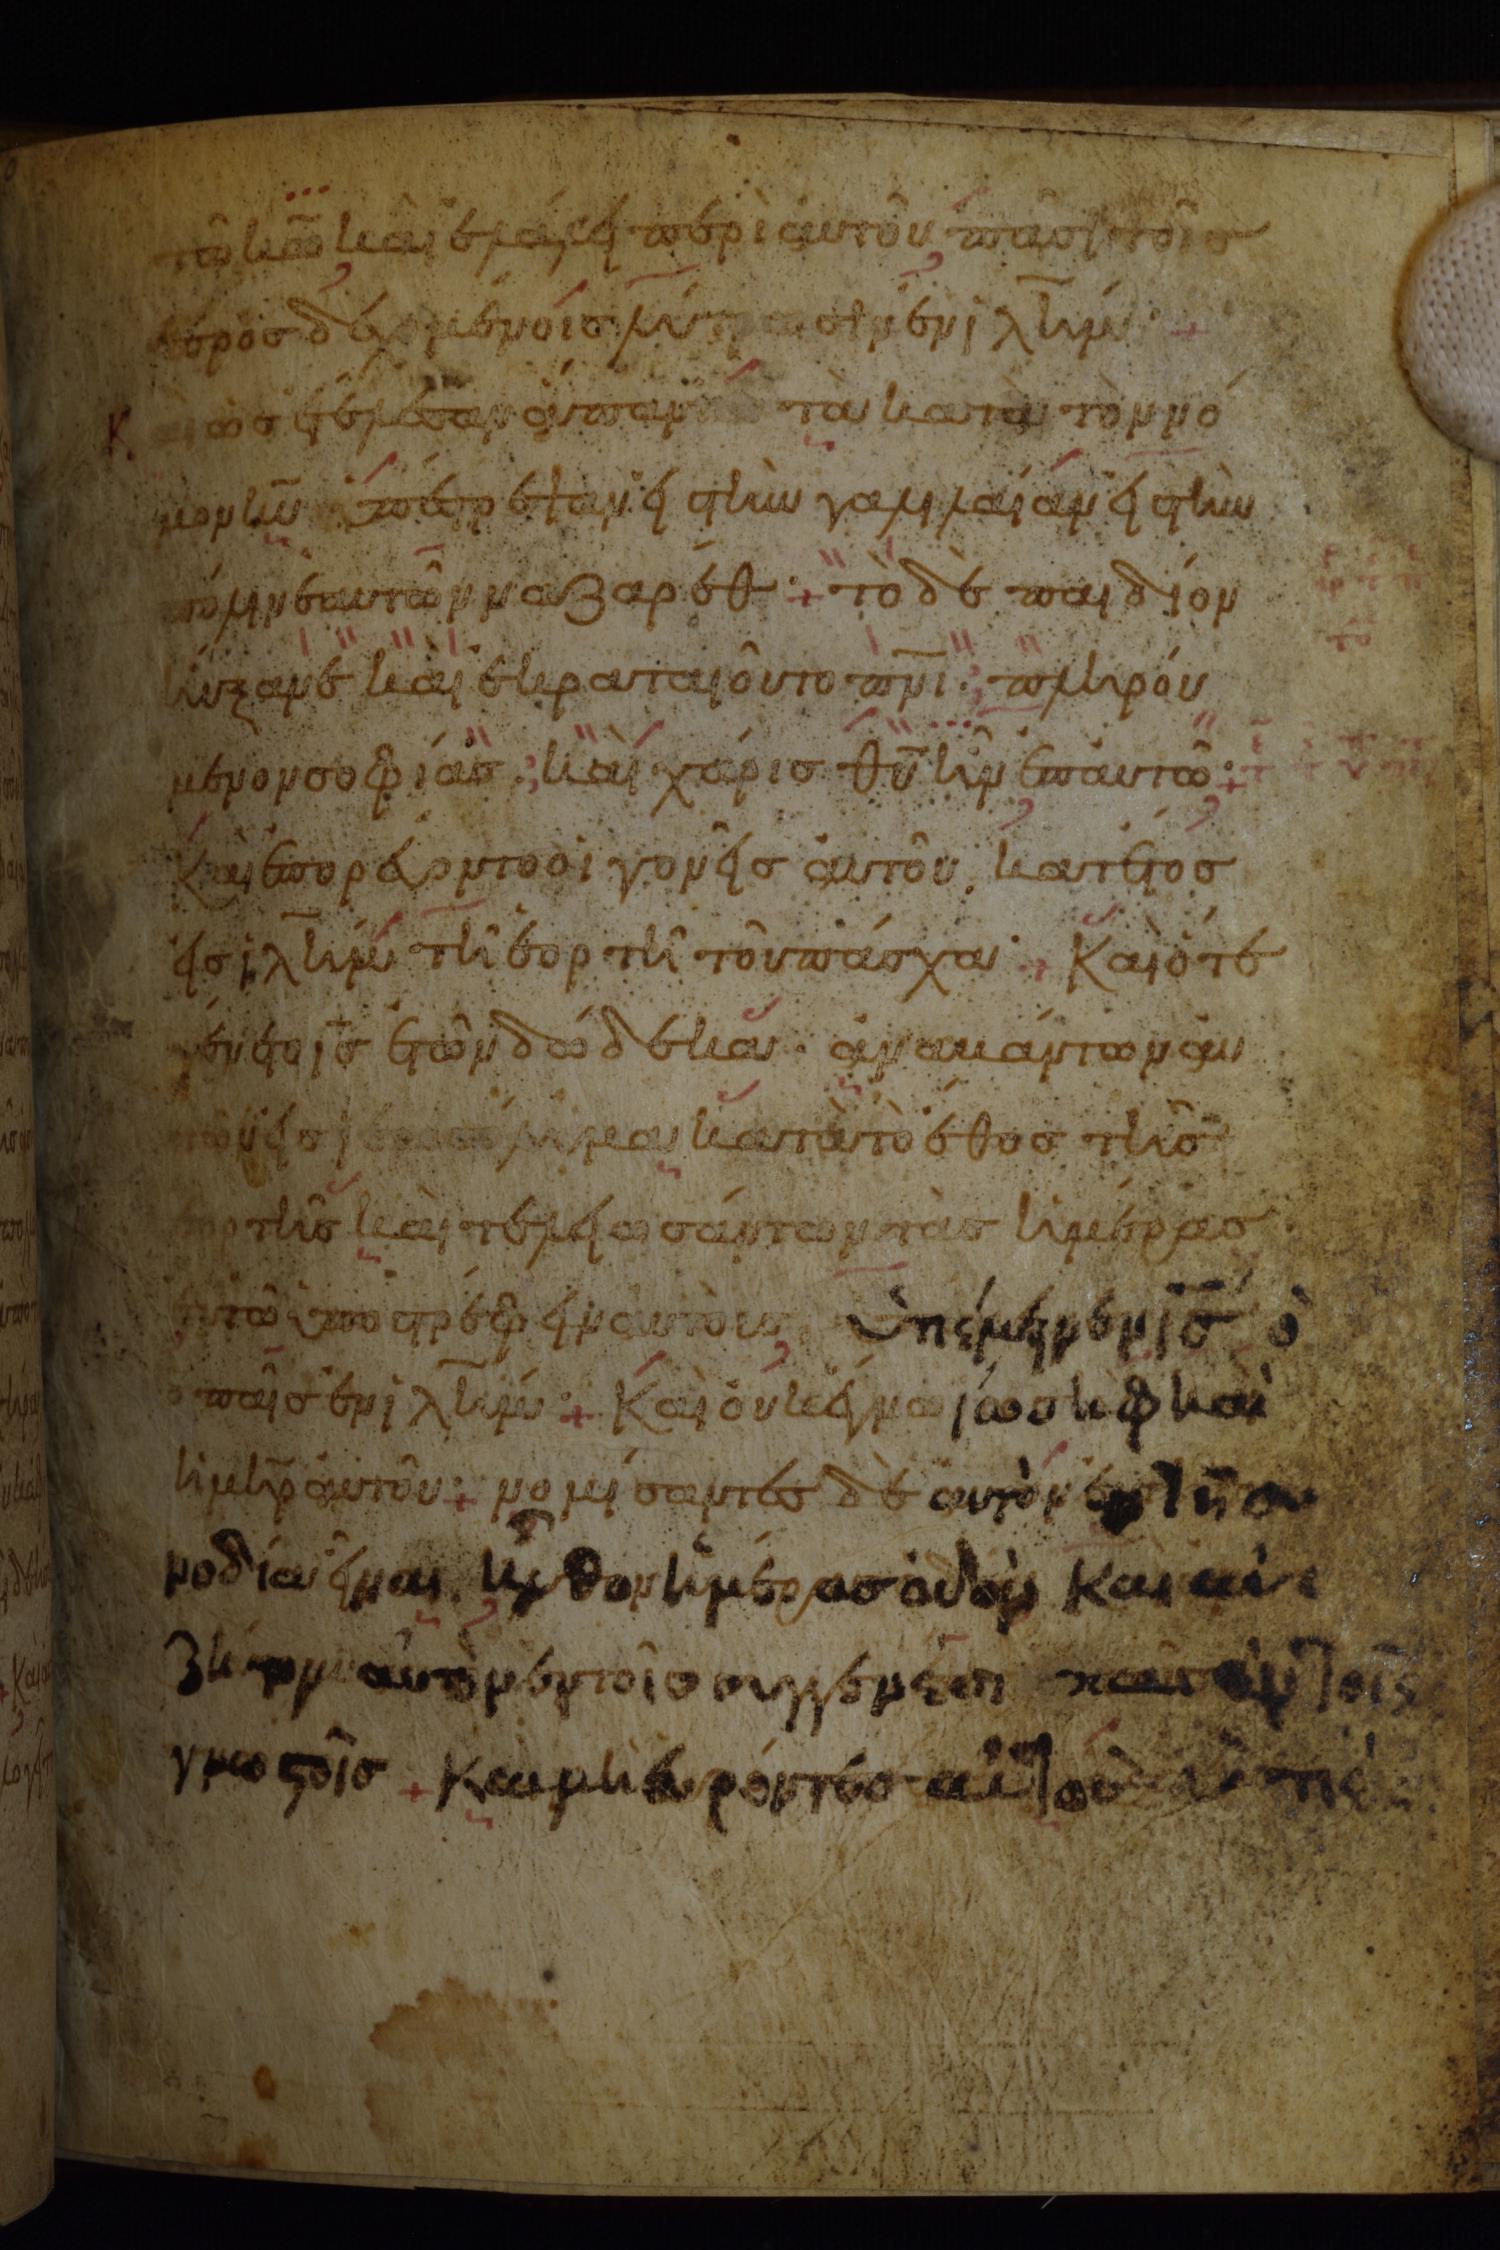 τῶ κῶ καὶ ἐλάλει περὶ αὐτοῦ πᾶσι τοῖσ
δεχομένοισ λύτρωσιν ἐν ἱλὴμ· +
Κ αὶ ὡσ ἐτέλεσαν ἅπαντα τὰ κατὰ τὸν νό
μον κυ ὑπέστρεψαν εἰσ τὴν γαλιλαίαν εἰσ τὴν
πόλιν ἑαυτῶν ναζαρέθ· + τὸ δὲ παιδίον
ηὔξανε καὶ ἐκραταιοῦτο πνι· πληρού
μενον σοφίασ· καὶ χάρισ θυ ἦν ἐπ αὐτῶ· +
Καὶ ἐπορεύοντο οἱ γονεῖσ αὐτοῦ κατ ἔτοσ
εἰσ ἱλὴμ τῆ ἑορτῆ τοῦ πάσχα· + Καὶ ὅτε
ἐγένετο ισ ἐτῶν δώδεκα· ἀναβάντων αὐ
τῶν εἰσ ἱεροσόλυμα κατὰ τὸ ἔθοσ τῆσ
ἑορτῆσ καὶ τελειωσάντων τὰσ ἡμέρασ·
ἐν τῶ ὑποστρέφειν αὐτοὺσ ὑπέμεινεν ισ ὁ
παῖσ ἐν ἱλὴμ· + Καὶ οὐκ ἔγνω ἰωσὴφ καὶ
ἡ μηρ αὐτοῦ· + νομίσαντεσ δὲ αὐτὸν ἐν τῆ συ
νοδία εἶναι ἦλθον ἡμέρασ ὁδὸν Καὶ ἀνε
ζήτουν αὐτὸν ἐν τοῖσ συγγενέσι καὶ ἐν τοῖς
γνωστοῖσ + Καὶ μὴ εὑρόντεσ αὐτὸν